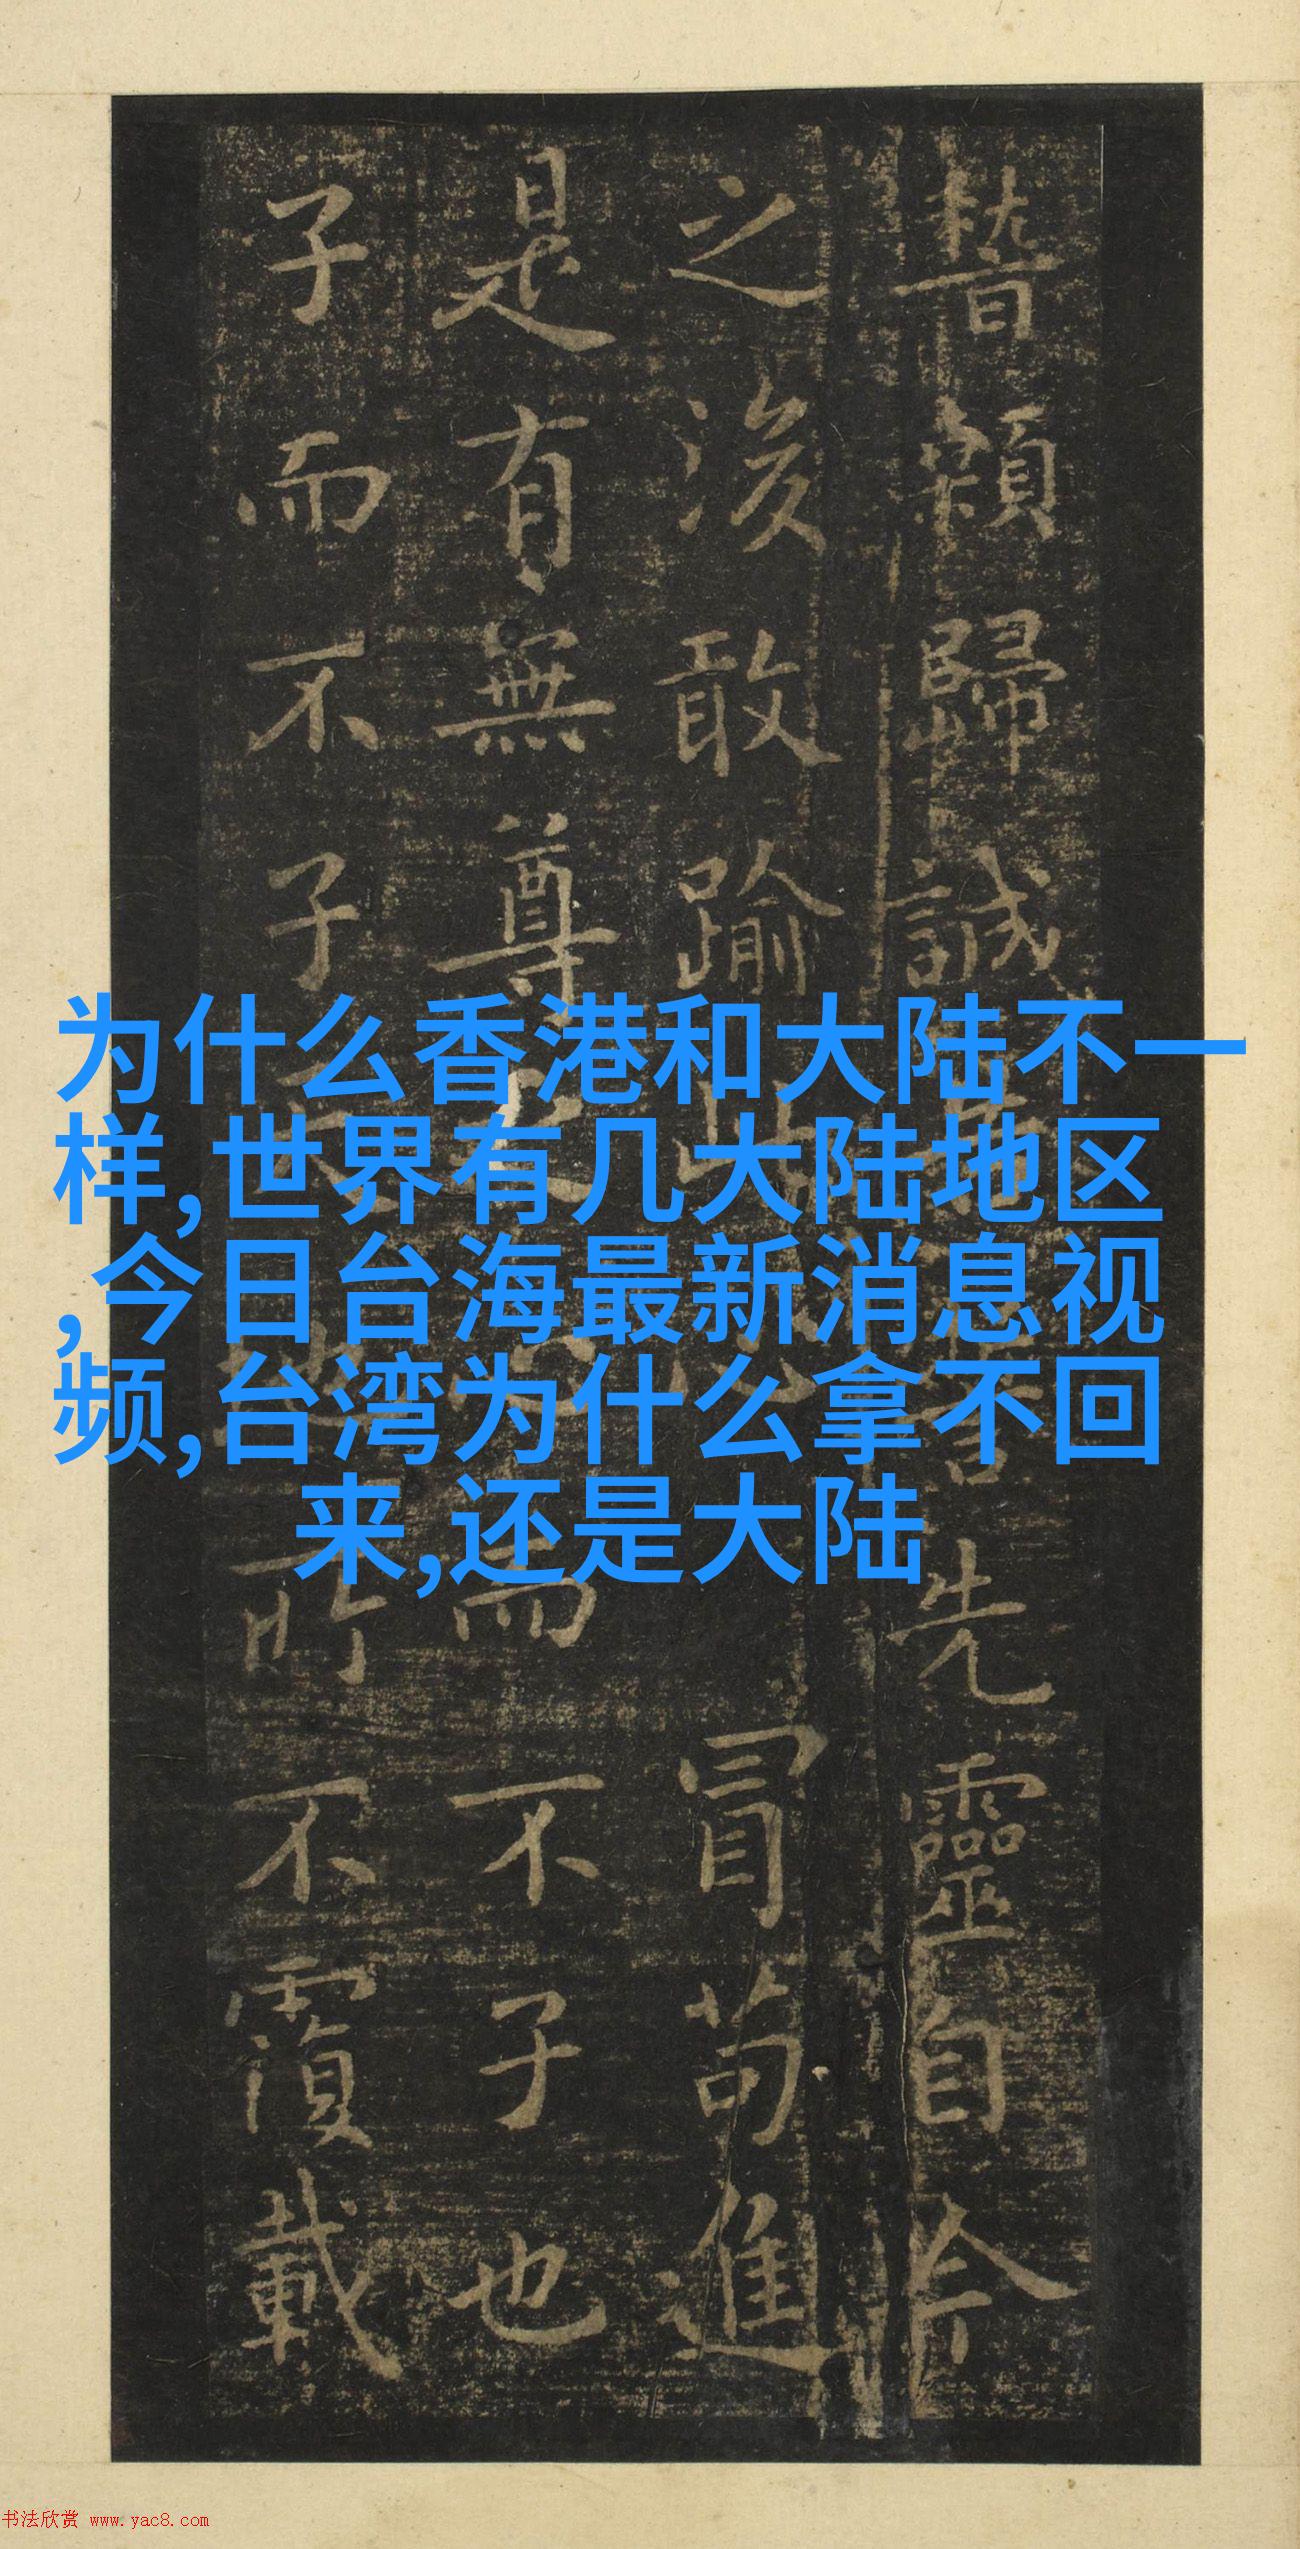 为什么香港和大陆不一
样,世界有几大陆地区
,今日台海最新消息视
频,台湾为什么拿不回
来,还是大陆
稽顙歸誠
先靈自
之後敢踰
冒苟進
是有無尊
而不子也
子而不子
所不覆載
书法欣赏 www.yac8.com